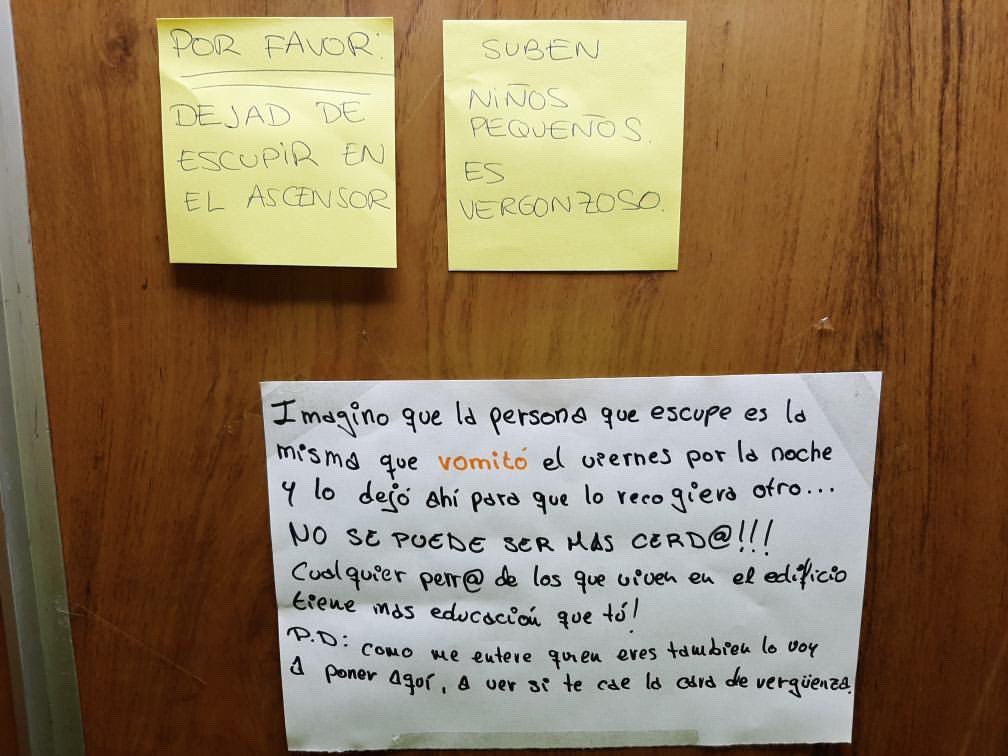 POR FAVOR:
DEJAD DE
ESCUPIR EN
EL ASCENSOR
SUBEN
NIÑOS
PEQUEÑOS.
ES
VERGONZOSO.
Imagino que la persona que escupe es la
misma que vomitó el viernes por la noche
y lo dejó ahí para que lo recogiera otro...
NO SE PUEDE SER MAS CERD@!!!
Cualquier perr@ de los que viven en el edificio
tiene mas educación que tú!
P.D: como me entere quien eres tambien lo voy
a poner aquí, a ver si te cae la cara de vergüenza.